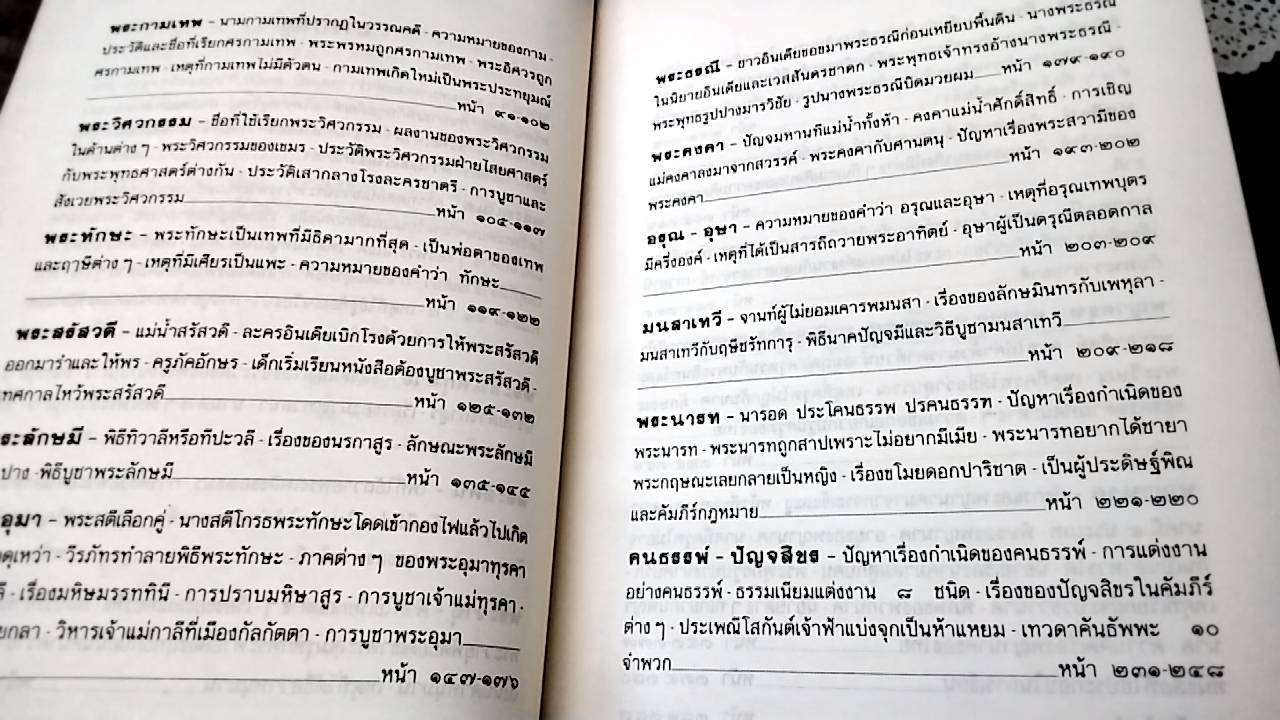 พระกามเทพ – นามกามเทพที่ปรากฏในวรรณคดี - ความหมายของกาม -
ประวัติและชื่อที่เรียกศรกามเทพ - พระพรหมถูกศรกามเทพ - พระอิศวรถูก
ศรกามเทพ - เหตุที่กามเทพไม่มีตัวตน - กามเทพเกิดใหม่เป็นพระประทยุมณ์
หน้า ๙๑-๑๐๒
พระวิศวกรรม – ชื่อที่ใช้เรียกพระวิศวกรรม - ผลงานของพระวิศวกรรม
ในด้านต่าง ๆ - พระวิศวกรรมของเขมร - ประวัติพระวิศวกรรมฝ่ายไสยศาสตร์
กับพระพุทธศาสตร์ต่างกัน - ประวัติเสากลางโรงละครชาตรี - การบูชาและ
สังเวยพระวิศวกรรม หน้า ๑๐๕-๑๑๗
พระทักษะ – พระทักษะเป็นเทพที่มีธิดามากที่สุด - เป็นพ่อตาของเทพ
และฤๅษีต่าง ๆ - เหตุที่มีเศียรเป็นแพะ - ความหมายของคำว่า ทักษะ
หน้า ๑๑๙-๑๒๒
พระสรัสวดี – แม่น้ำสรัสวดี - ละครอินเดียเบิกโรงด้วยการให้พระสรัสวดี
ออกมารำและให้พร - ครูภัคอักษร - เด็กเริ่มเรียนหนังสือต้องบูชาพระสรัสวดี -
ทศกาลไหว้พระสรัสวดี หน้า ๑๒๕-๑๓๒
ระลักษมี – พิธีทิวาลีหรือทีปะวลี - เรื่องของนรกาสูร - ลักษณะพระลักษมี
ปาง - พิธีบูชาพระลักษมี หน้า ๑๓๕-๑๔๕
อุมา – พระสตีเลือกคู่ - นางสตีโกรธพระทักษะโดดเข้ากองไฟแล้วไปเกิด
ตุเหว่า - วีรภัทรทำลายพิธีพระทักษะ - ภาคต่าง ๆ ของพระอุมาทุรคา
ลี - เรื่องมหิษมรรททินี - การปราบมหิษาสูร - การบูชาเจ้าแม่ทุรคา -
ยกลา - วิหารเจ้าแม่กาลีที่เมืองกัลกัตตา - การบูชาพระอุมา
หน้า ๑๔๗-๑๗๖
พระธรณี – ชาวอินเดียขอขมาพระธรณีก่อนเหยียบพื้นดิน - นางพระธรณี
ในนิยายอินเดียและเวสสันดรชาดก - พระพุทธเจ้าทรงอ้างนางพระธรณี -
พระพุทธรูปปางมารวิชัย - รูปนางพระธรณีบิดมวยผม หน้า ๑๗๙-๑๙๐
พระคงคา – ปัญจมหานทีแม่น้ำทั้งห้า - คงคาแม่น้ำศักดิ์สิทธิ์ - การเชิญ
แม่คงคาลงมาจากสวรรค์ - พระคงคากับศานตนุ - ปัญหาเรื่องพระสวามีของ
พระคงคา หน้า ๑๙๓-๒๐๒
อรุณ - อุษา – ความหมายของคำว่า อรุณและอุษา - เหตุที่อรุณเทพบุตร
มีครึ่งองค์ - เหตุที่ได้เป็นสารถีถวายพระอาทิตย์ - อุษาผู้เป็นดรุณีตลอดกาล
หน้า ๒๐๓-๒๐๙
มนสาเทวี – จานท์ผู้ไม่ยอมเคารพมนสา - เรื่องของลักษมินทรกับเพหุลา -
มนสาเทวีกับฤษีชรัทการุ - พิธีนาคปัญจมีและวิธีบูชามนสาเทวี
หน้า ๒๐๙-๒๑๘
พระนารท – นารอด ประโคนธรรพ ปรคนธรรท - ปัญหาเรื่องกำเนิดของ
พระนารท - พระนารทถูกสาปเพราะไม่อยากมีเมีย - พระนารทอยากได้ชายา
พระกฤษณะเลยกลายเป็นหญิง - เรื่องขโมยดอกปาริชาต - เป็นผู้ประดิษฐ์พิณ
และคัมภีร์กฎหมาย หน้า ๒๒๑-๒๒๐
คนธรรพ์ - ปัญจสิขร – ปัญหาเรื่องกำเนิดของคนธรรพ์ - การแต่งงาน
อย่างคนธรรพ์ - ธรรมเนียมแต่งงาน ๘ ชนิด - เรื่องของปัญจสิขรในคัมภีร์
ต่าง ๆ - ประเพณีโสกันต์เจ้าฟ้าแบ่งจุกเป็นห้าแหยม - เทวดาคันธัพพะ ๑๐
จำพวก หน้า ๒๓๑-๒๔๘